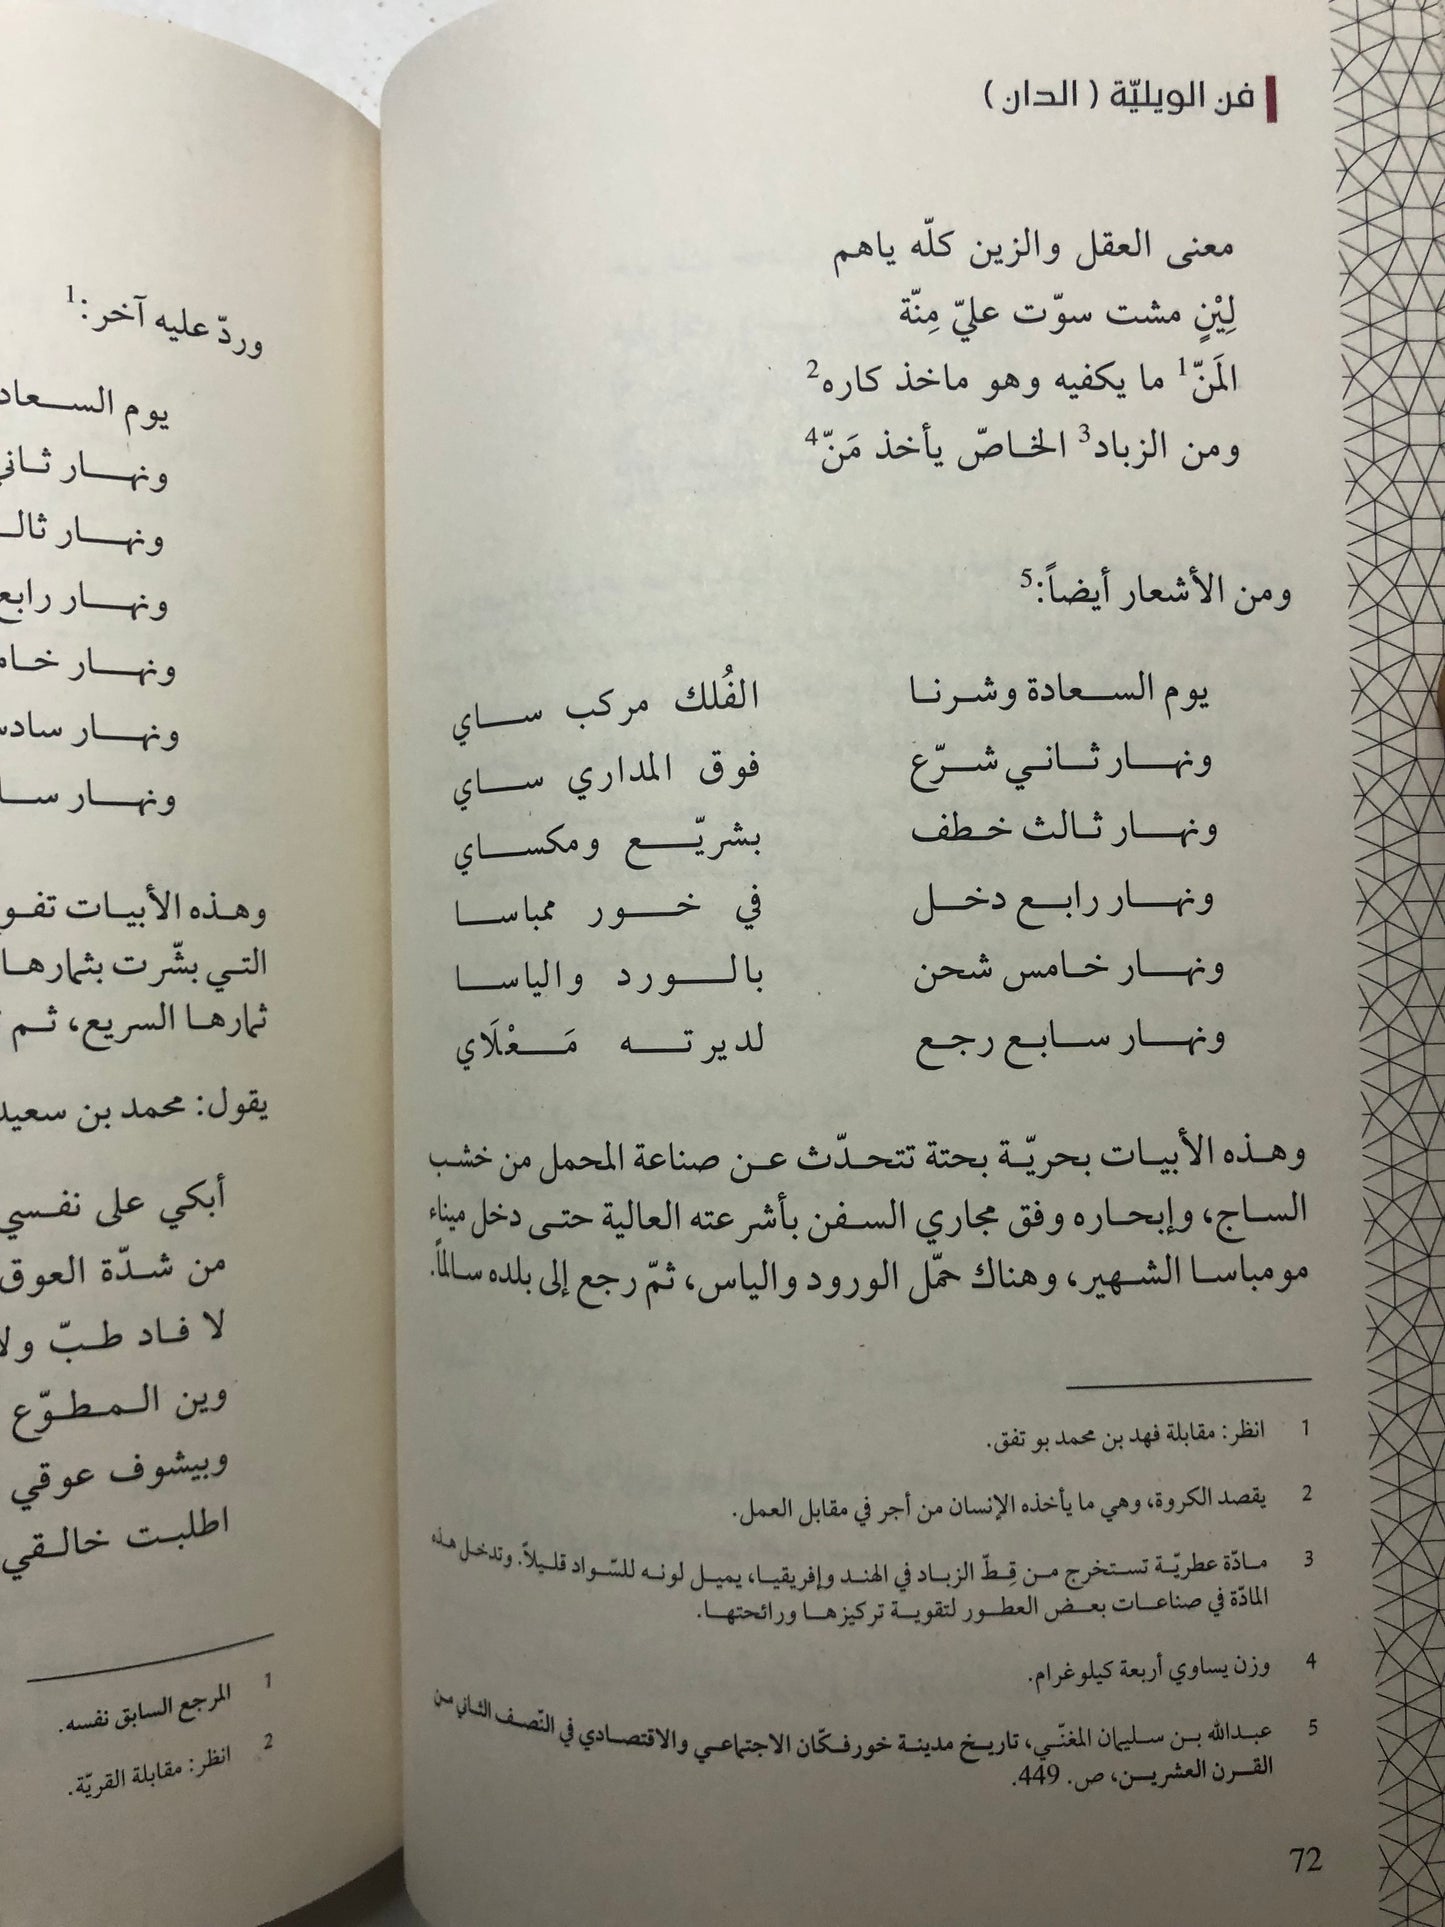 فن الويليّة ( الدان )
معنى العقل والزين كلّه ياهم
لِيْنٍ مشت سوّت عليّ مِنّة
المَنّ1 ما يكفيه وهو ماخذ كاره2
ومن الزباد3 الخاصّ يأخذ مَنّ4
ومن الأشعار أيضاً:5
يوم السعادة وشرنا الفُلك مركب ساي
ونهار ثاني شرّع فوق المداري ساي
ونهار ثالث خطف بشريّع ومكساي
ونهار رابع دخل في خور ممباسا
ونهار خامس شحن بالورد والياسا
ونهار سابع رجع لديرته مَعْلَاي
وهذه الأبيات بحريّة بحتة تتحدّث عن صناعة المحمل من خشب
الساج، وإبحاره وفق مجاري السفن بأشرعته العالية حتى دخل ميناء
مومباسا الشهير، وهناك حمّل الورود والياس، ثمّ رجع إلى بلده سالماً.
1 انظر: مقابلة فهد بن محمد بو تفق.
2 يقصد الكروة، وهي ما يأخذه الإنسان من أجر في مقابل العمل.
3 مادّة عطريّة تستخرج من قِطّ الزباد في الهند وإفريقيا، يميل لونه للسّواد قليلاً. وتدخل هذه
المادّة في صناعات بعض العطور لتقوية تركيزها ورائحتها.
4 وزن يساوي أربعة كيلوغرام.
5 عبدالله بن سليمان المغنّي، تاريخ مدينة خورفكّان الاجتماعي والاقتصادي في النّصف الثاني من
القرن العشرين، ص. 449.
72
وردّ عليه آخر:1
يوم
ونهار
ونهار
ونهار رابع
ونهار
ونهار
ونهار
وهذه الأبيات
التي بشّرت بثمارها
ثمارها السريع، ثم
يقول: محمد بن سعيد
أبكي على نفسي
من شدّة العوق
لا فاد طبّ
وين المطوّع
وبيشوف عوقي
اطلبت خالقي
1 المرجع السابق نفسه.
2 انظر: مقابلة القريّة.